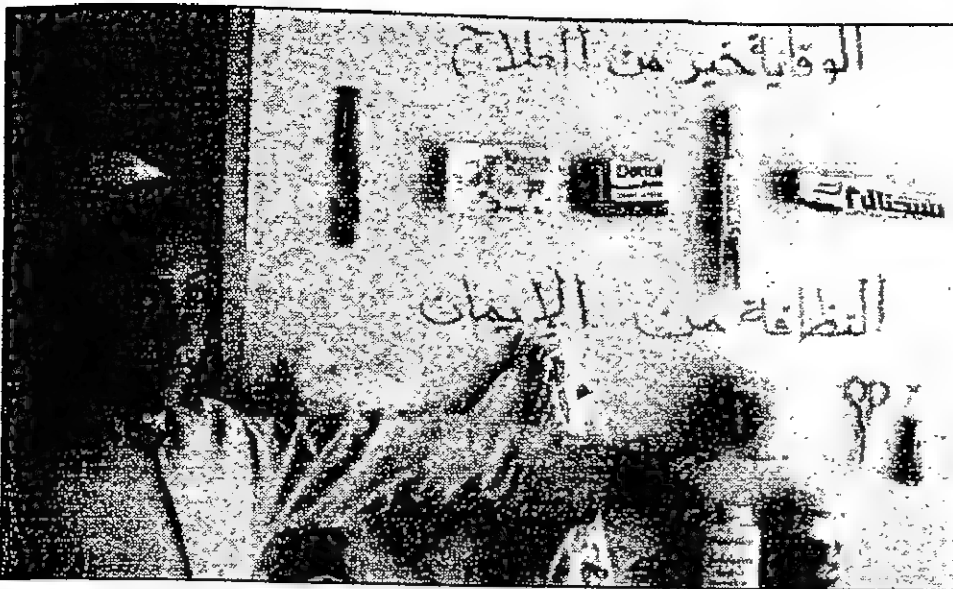 الوقاية خير من العلاج
Dettol
النظافة من الإيمان